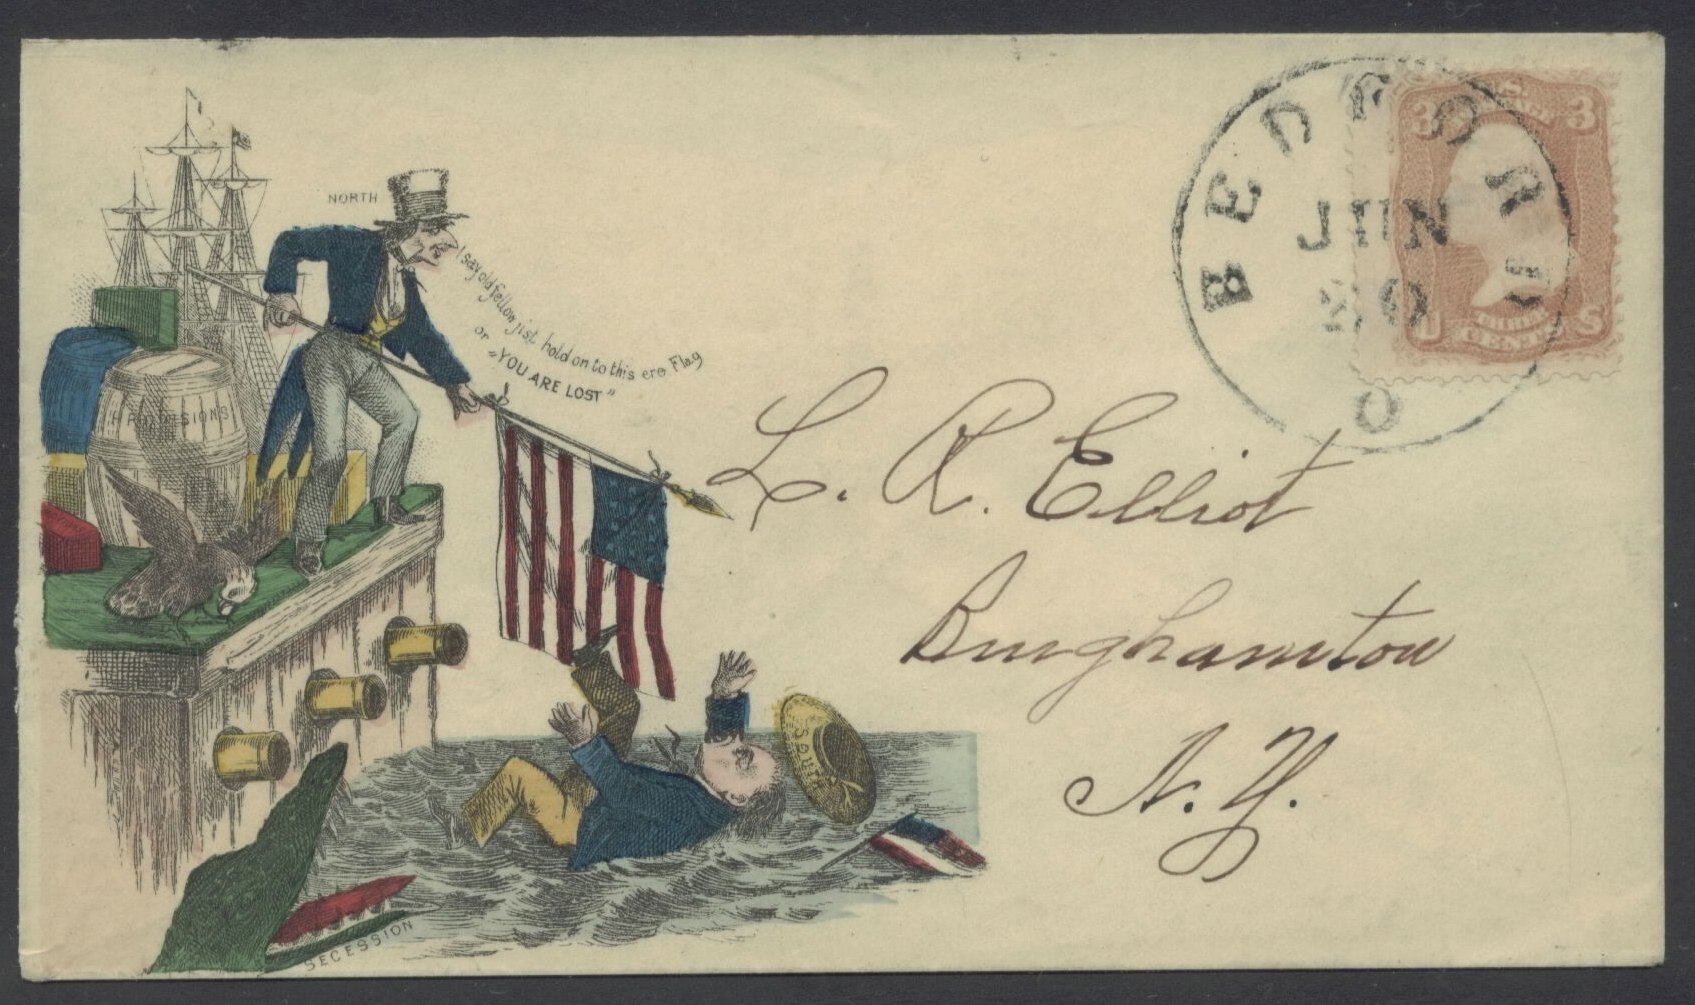 NORTH
I say old fellow jist hold on to this ere Flag
or
"YOU ARE LOST"
PROVISIONS
SOUTH
SECESSION
BEDFORD
JUN
20
O
3 3
U S
CENTS
L. R. Elliot
Binghamton
N. Y.